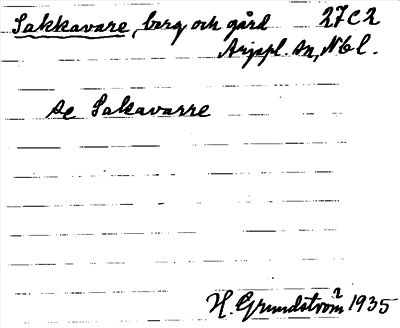 Sakkavare, berg och gård 27C2
Arjepl. sn, Nbl.
Se Sakavarre
H. Grundström 1935